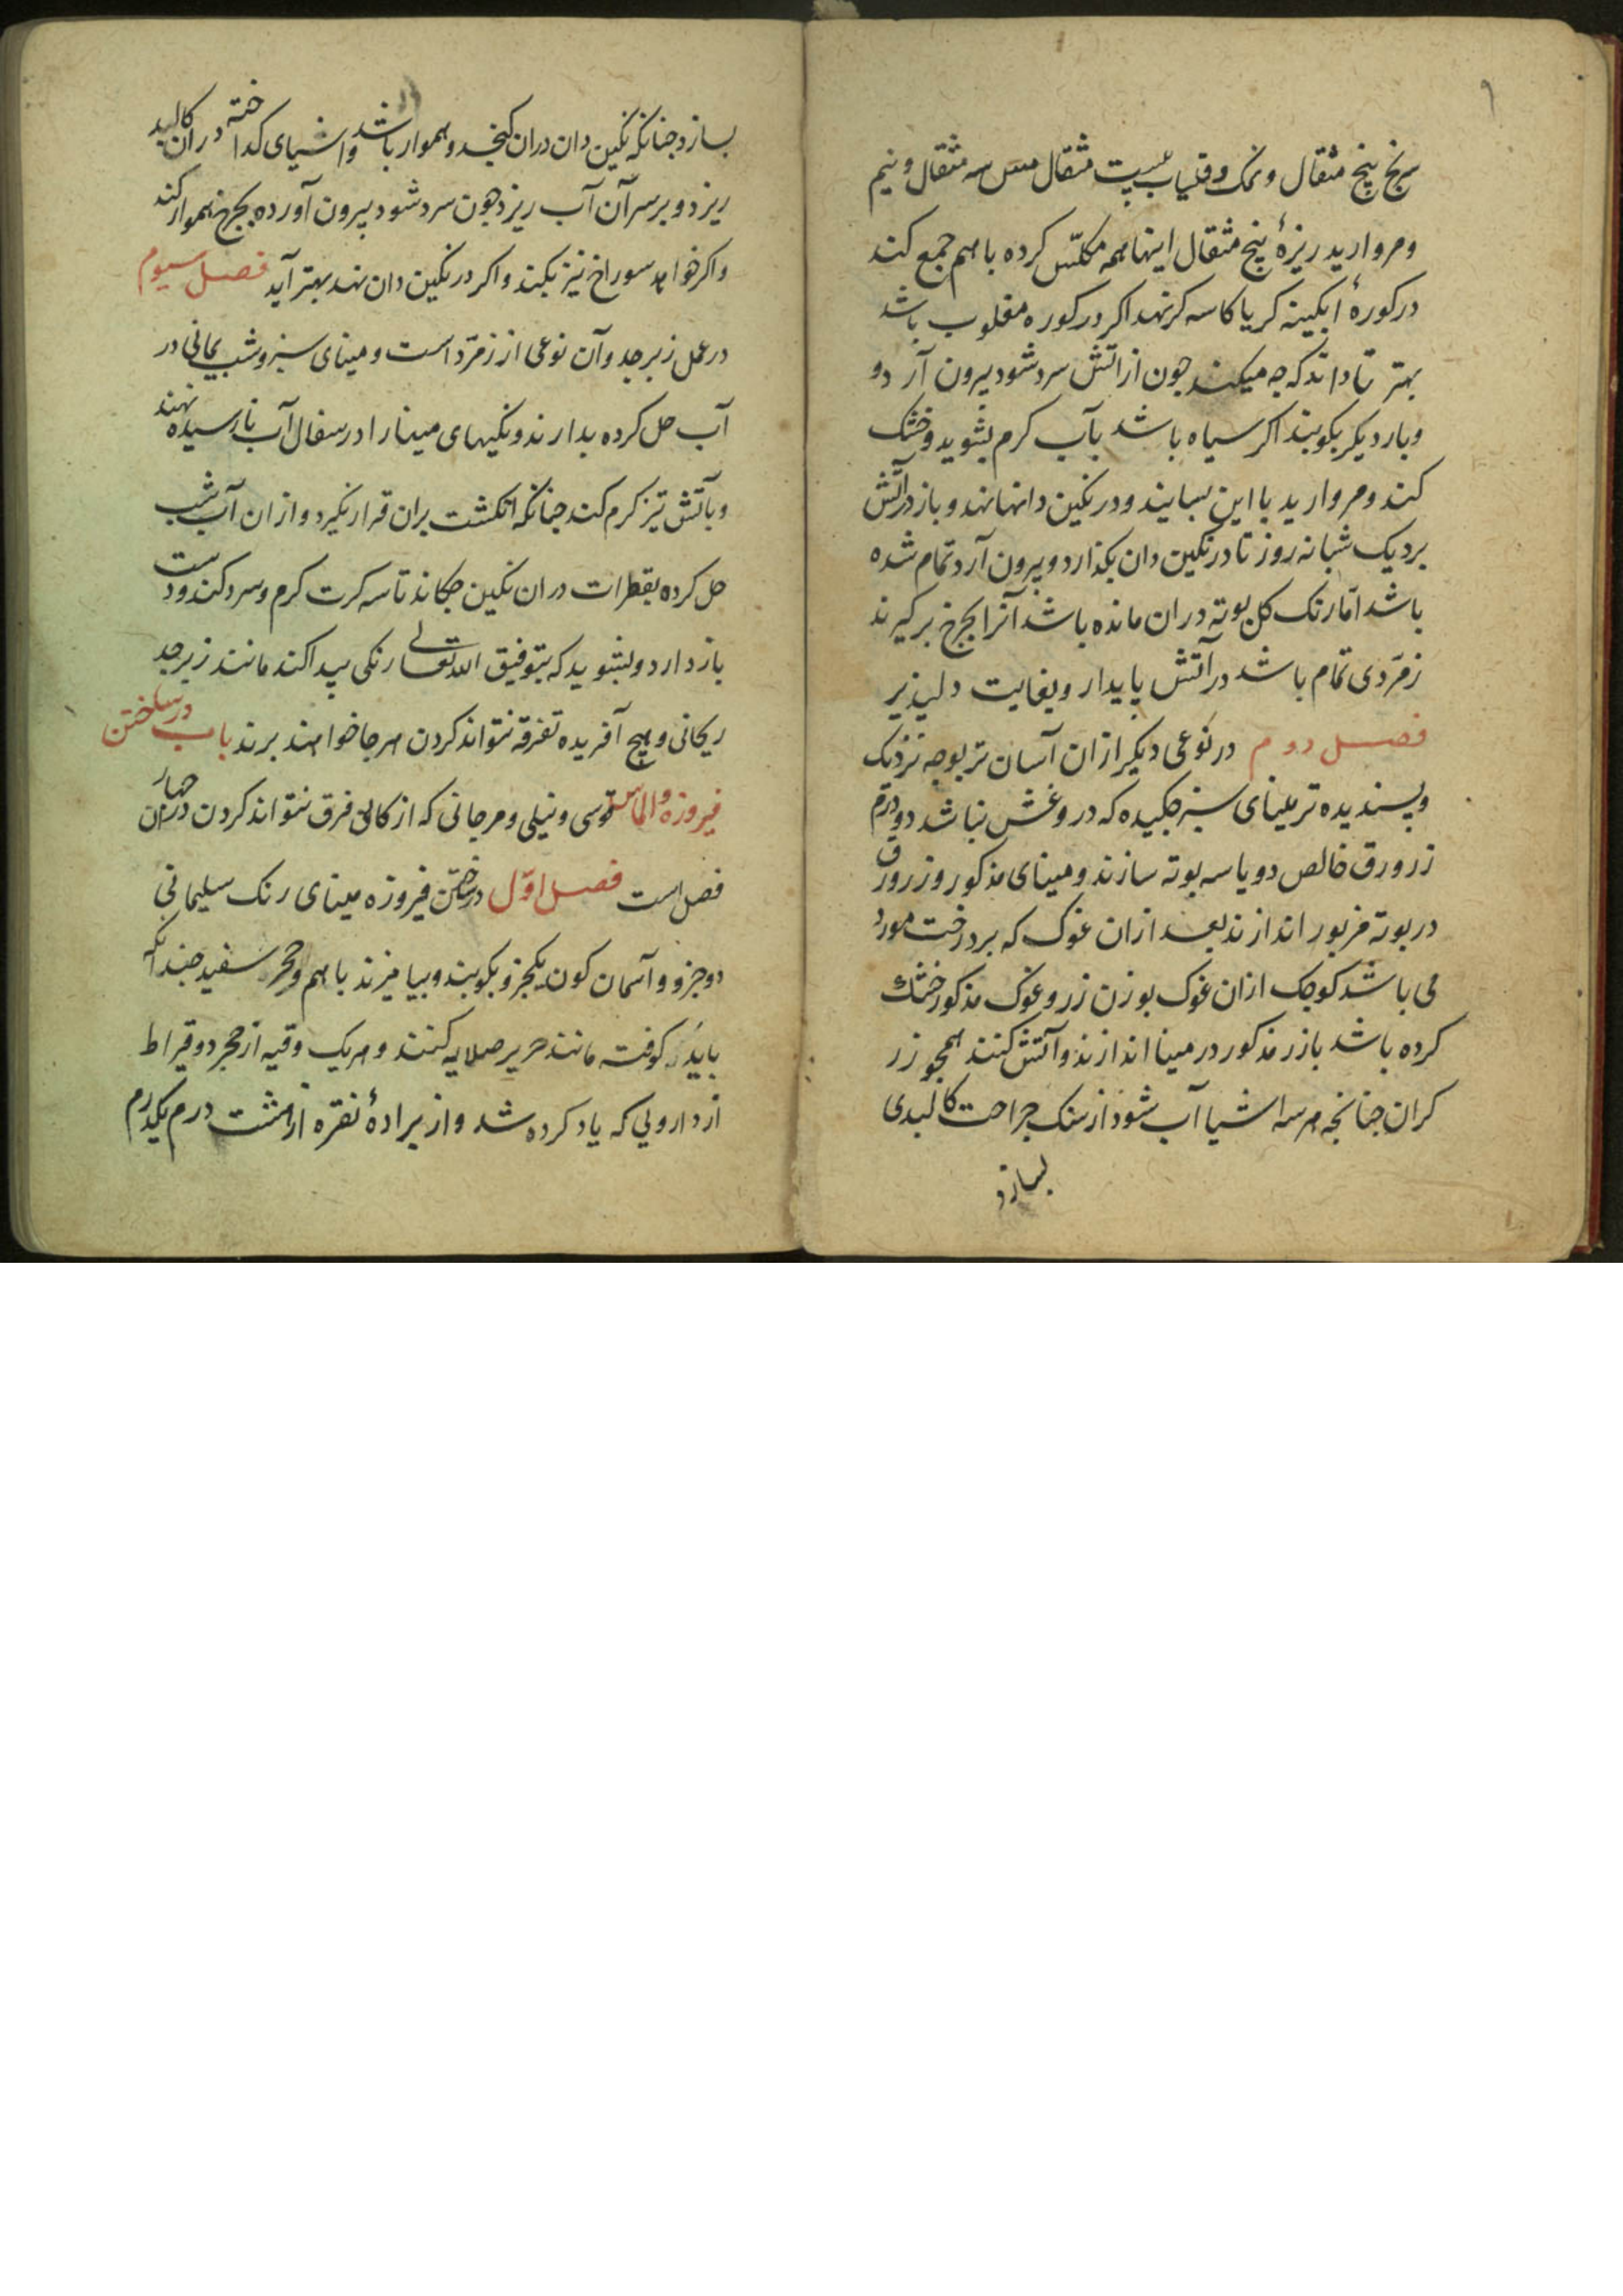 سرنج پنج مثقال و نمک و قلیاب بیست مثقال مس سه مثقال و نیم
و مروارید ریزهٔ پنج مثقال اینها همه مکلّس کرده باهم جمع کند
در کورهٔ ابکینه کر یا کاسه کر نهد اکر در کوره مقلوب باشد
بهتر تا داند که چه میکند چون از اتش سرد شود بیرون آرد و
و بار دیکر بکوبند اکر سیاه باشد بآب کرم بشوید و خشک
کند و مروارید با این بسایند و در نکین دانها نهند و باز در آتش
برد یک شبانه روز تا در نکین دان بکذارد و بیرون آرد تمام شده
باشد امّا رنک کل بوته دران مانده باشد آنرا بچرخ برکیرند
زمرّدی تمام باشد در آتش پایدار و بغایت دلپذیر
فصل دوم در نوعی دیکر ازان آسان تر بوجه نزدیک
و پسندیده تر مینای سبز چکیده که در و غش نباشد دو درم
زر ورق خالص دو یا سه بوته سازند و مینای مذکور و زر ورق
در بوته مزبور اندازند بعد ازان غوک که بر درخت مورد
می باشد کوچک ازان غوک بوزن زر و غوک مذکور خشک
کرده باشد با زر مذکور در مینا اندازند و آتش کنند همچو زر
کران چنانچه هر سه اشیا آب شود از سنک جراحت کالبدی
بسازد
بسازد چنانکه نکین دان دران کنجد و هموار باشد و اشیای کداخته دران کالبد
ریزد و بر سر آن آب ریزد چون سرد شود بیرون آورده بچرخ هموار کند
و اکر خواهد سوراخ نیز بکند و اکر در نکین دان نهد بهتر آید فصل سیوم
در عمل زبرجد و آن نوعی از زمرّد است و مینای سبز و شب یمانی در
آب حل کرده بدارند و نکینهای مینا را در سفال آب نارسیده نهند
و بآتش تیز کرم کند چنانکه انکشت بران قرار نکیرد و ازان آب شب
حل کرده بقطرات دران نکین چکاند تا سه کرت کرم و سرد کند و دست
باز دارد و بشوید که بتوفیق الله تعالی رنکی پیدا کند مانند زبرجد
ریحانی و هیچ آفریده تفرقه نتواند کردن هر جا خواهند برند باب در ساختن
فیروزه و الماس توسی و نیلی و مرجانی که از کانی فرق نتواند کردن دران چهار
فصل است فصل اوّل در ساختن فیروزه مینای رنک سلیمانی
دو جزو و آسمان کون یکجزو بکوبند و بیامیزند باهم و حجر سفید چندانکه
باید کوفته مانند حریر صلایه کنند و هر یک وقیه از حجر دو قیراط
از داروئی که یاد کرده شد و از برادهٔ نقره از هشت درم یکدرم